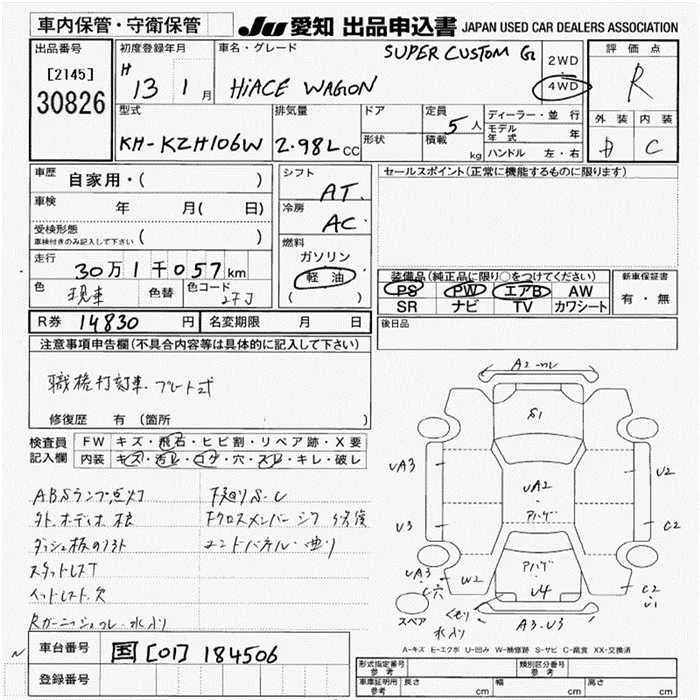 車内保管・守衛保管
JU 愛知 出品申込書 JAPAN USED CAR DEALERS ASSOCIATION
出品番号
[2145]
30826
初度登録年月
H 13 1月
車名・グレード
SUPER CUSTOM G
HiACE WAGON
2WD
4WD
評価点
R
外装 内装
D C
型式
KH-KZH106W
排気量
2.98L CC
ドア
形状
定員
5人
積載
kg
ディーラー・並行
モデル年式 年
ハンドル 左・右
車歴
自家用・( )
車検
年 月( 日)
受検形態
車検付きのみ記入して下さい ( )
走行
30万1千057km
色
現車
色替
色コード
2FJ
シフト
AT.
冷房
AC
燃料
ガソリン
軽油
( )
セールスポイント(正常に機能するものに限ります)
装備品(純正品に限り○をつけてください)
PS PW エアB AW
SR ナビ TV カワシート
新車保証書
有・無
後日品
R券 14830 円
名変期限 月 日
注意事項申告欄(不具合内容等は具体的に記入して下さい)
職権打刻車. プレート式
修復歴 有(箇所 )
検査員記入欄
FW キズ・飛石・ヒビ割・リペア跡・X要
内装 キズ・汚レ・コゲ・穴・スレ・キレ・破レ
ABSランプ点灯
下廻りS.C
外.オーディオ 欠
スタットレス
エンドパネル.曲り
水入り
A2
S1
UA3
U2
UA2
アハゲ
U3
C2
アハゲ
U4
UA3
C穴
W2
C2
U1
くもり
水入り
A3.U3
スペア
A-キズ E-エクボ U-凹み W-補修跡 S-サビ C-腐食 XX-交換済
車台番号
国[01]184506
登録番号
型式指定番号
参考
類別区分番号
参考
車庫証明用
参考
長さ cm
幅 cm
高さ cm